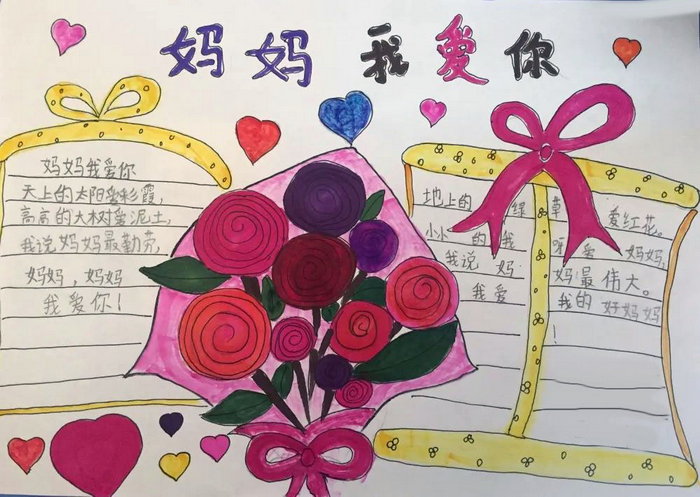 妈妈 我爱你
妈妈我爱你
天上的太阳爱彩霞,
高高的大树爱泥土,
我说妈妈最勤劳,
妈妈,妈妈
我爱你!
地上的绿草爱红花。
小小的我呀爱妈妈,
我说妈妈最伟大。
我爱我的好妈妈
!